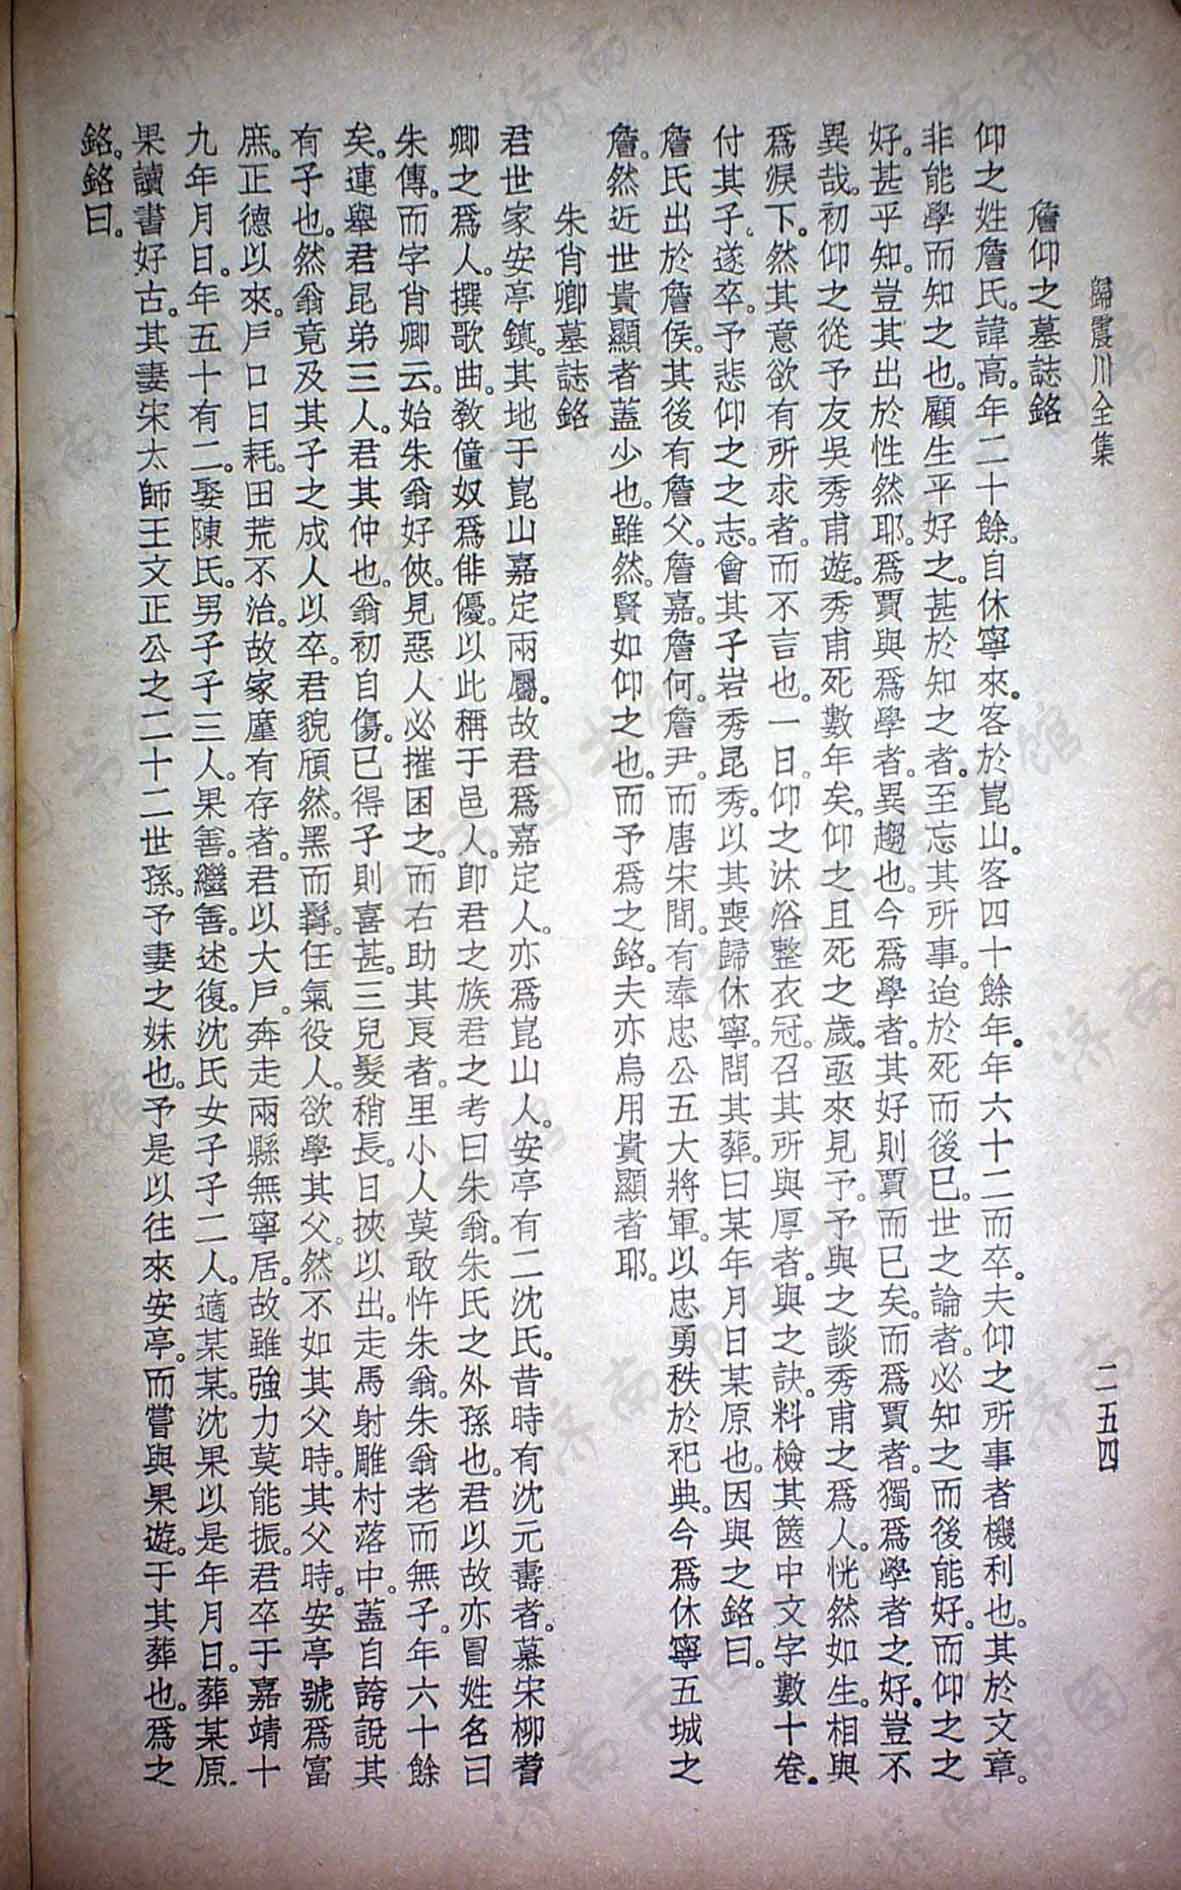 歸震川全集
二五四
詹仰之墓誌銘
仰之姓詹氏。諱高。年二十餘。自休寧來。客於崑山。客四十餘年。年六十二而卒。夫仰之所事者機利也。其於文章。
非能學而知之也。顧生平好之。甚於知之者。至忘其所事。迨於死而後已。世之論者。必知之而後能好。而仰之之
好。甚乎知。豈其出於性然耶。爲賈與爲學者。異趨也。今爲學者。其好則賈而已矣。而爲賈者。獨爲學者之好。豈不
異哉。初仰之從予友吳秀甫遊。秀甫死數年矣。仰之且死之歲。亟來見予。予與之談秀甫之爲人。恍然如生。相與
爲淚下。然其意欲有所求者。而不言也。一日。仰之沐浴整衣冠。召其所與厚者。與之訣。料檢其篋中文字數十卷。
付其子。遂卒。予悲仰之之志。會其子岩秀昆秀。以其喪歸休寧。問其葬。曰某年月日某原也。因與之銘曰。
詹氏出於詹侯。其後有詹父。詹嘉。詹何。詹尹。而唐宋間。有奉忠公五大將軍。以忠勇秩於祀典。今爲休寧五城之
詹。然近世貴顯者蓋少也。雖然。賢如仰之也。而予爲之銘。夫亦烏用貴顯者耶。
朱肖卿墓誌銘
君世家安亭鎮。其地于崑山嘉定兩屬。故君爲嘉定人。亦爲崑山人。安亭有二沈氏。昔時有沈元壽者。慕宋柳耆
卿之爲人。撰歌曲。敎僮奴爲俳優。以此稱于邑人。卽君之族。君之考曰朱翁。朱氏之外孫也。君以故亦冒姓名曰
朱傳。而字肖卿云。始朱翁好俠。見惡人必摧困之。而右助其良者。里小人莫敢忤朱翁。朱翁老而無子。年六十餘
矣。連舉君昆弟三人。君其仲也。翁初自傷。已得子則喜甚。三兒髮稍長。日挾以出。走馬射雕村落中。蓋自誇說其
有子也。然翁竟及其子之成人以卒。君貌頎然。黑而髯。任氣役人。欲學其父。然不如其父時。其父時。安亭號爲富
庶。正德以來。戶口日耗。田荒不治。故家廑有存者。君以大戶。奔走兩縣無寧居。故雖強力莫能振。君卒于嘉靖十
九年月日。年五十有二。娶陳氏。男子子三人。果善。繼善。述復。沈氏女子子二人。適某某。沈果以是年月日。葬某原.
果讀書好古。其妻宋太師王文正公之二十二世孫。予妻之妹也。予是以往來安亭。而嘗與果遊。于其葬也。爲之
銘。銘曰。